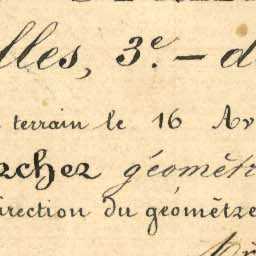 lles, 3e. - d
terrain le 16 Av
rcher géomèt
irection du géomètre